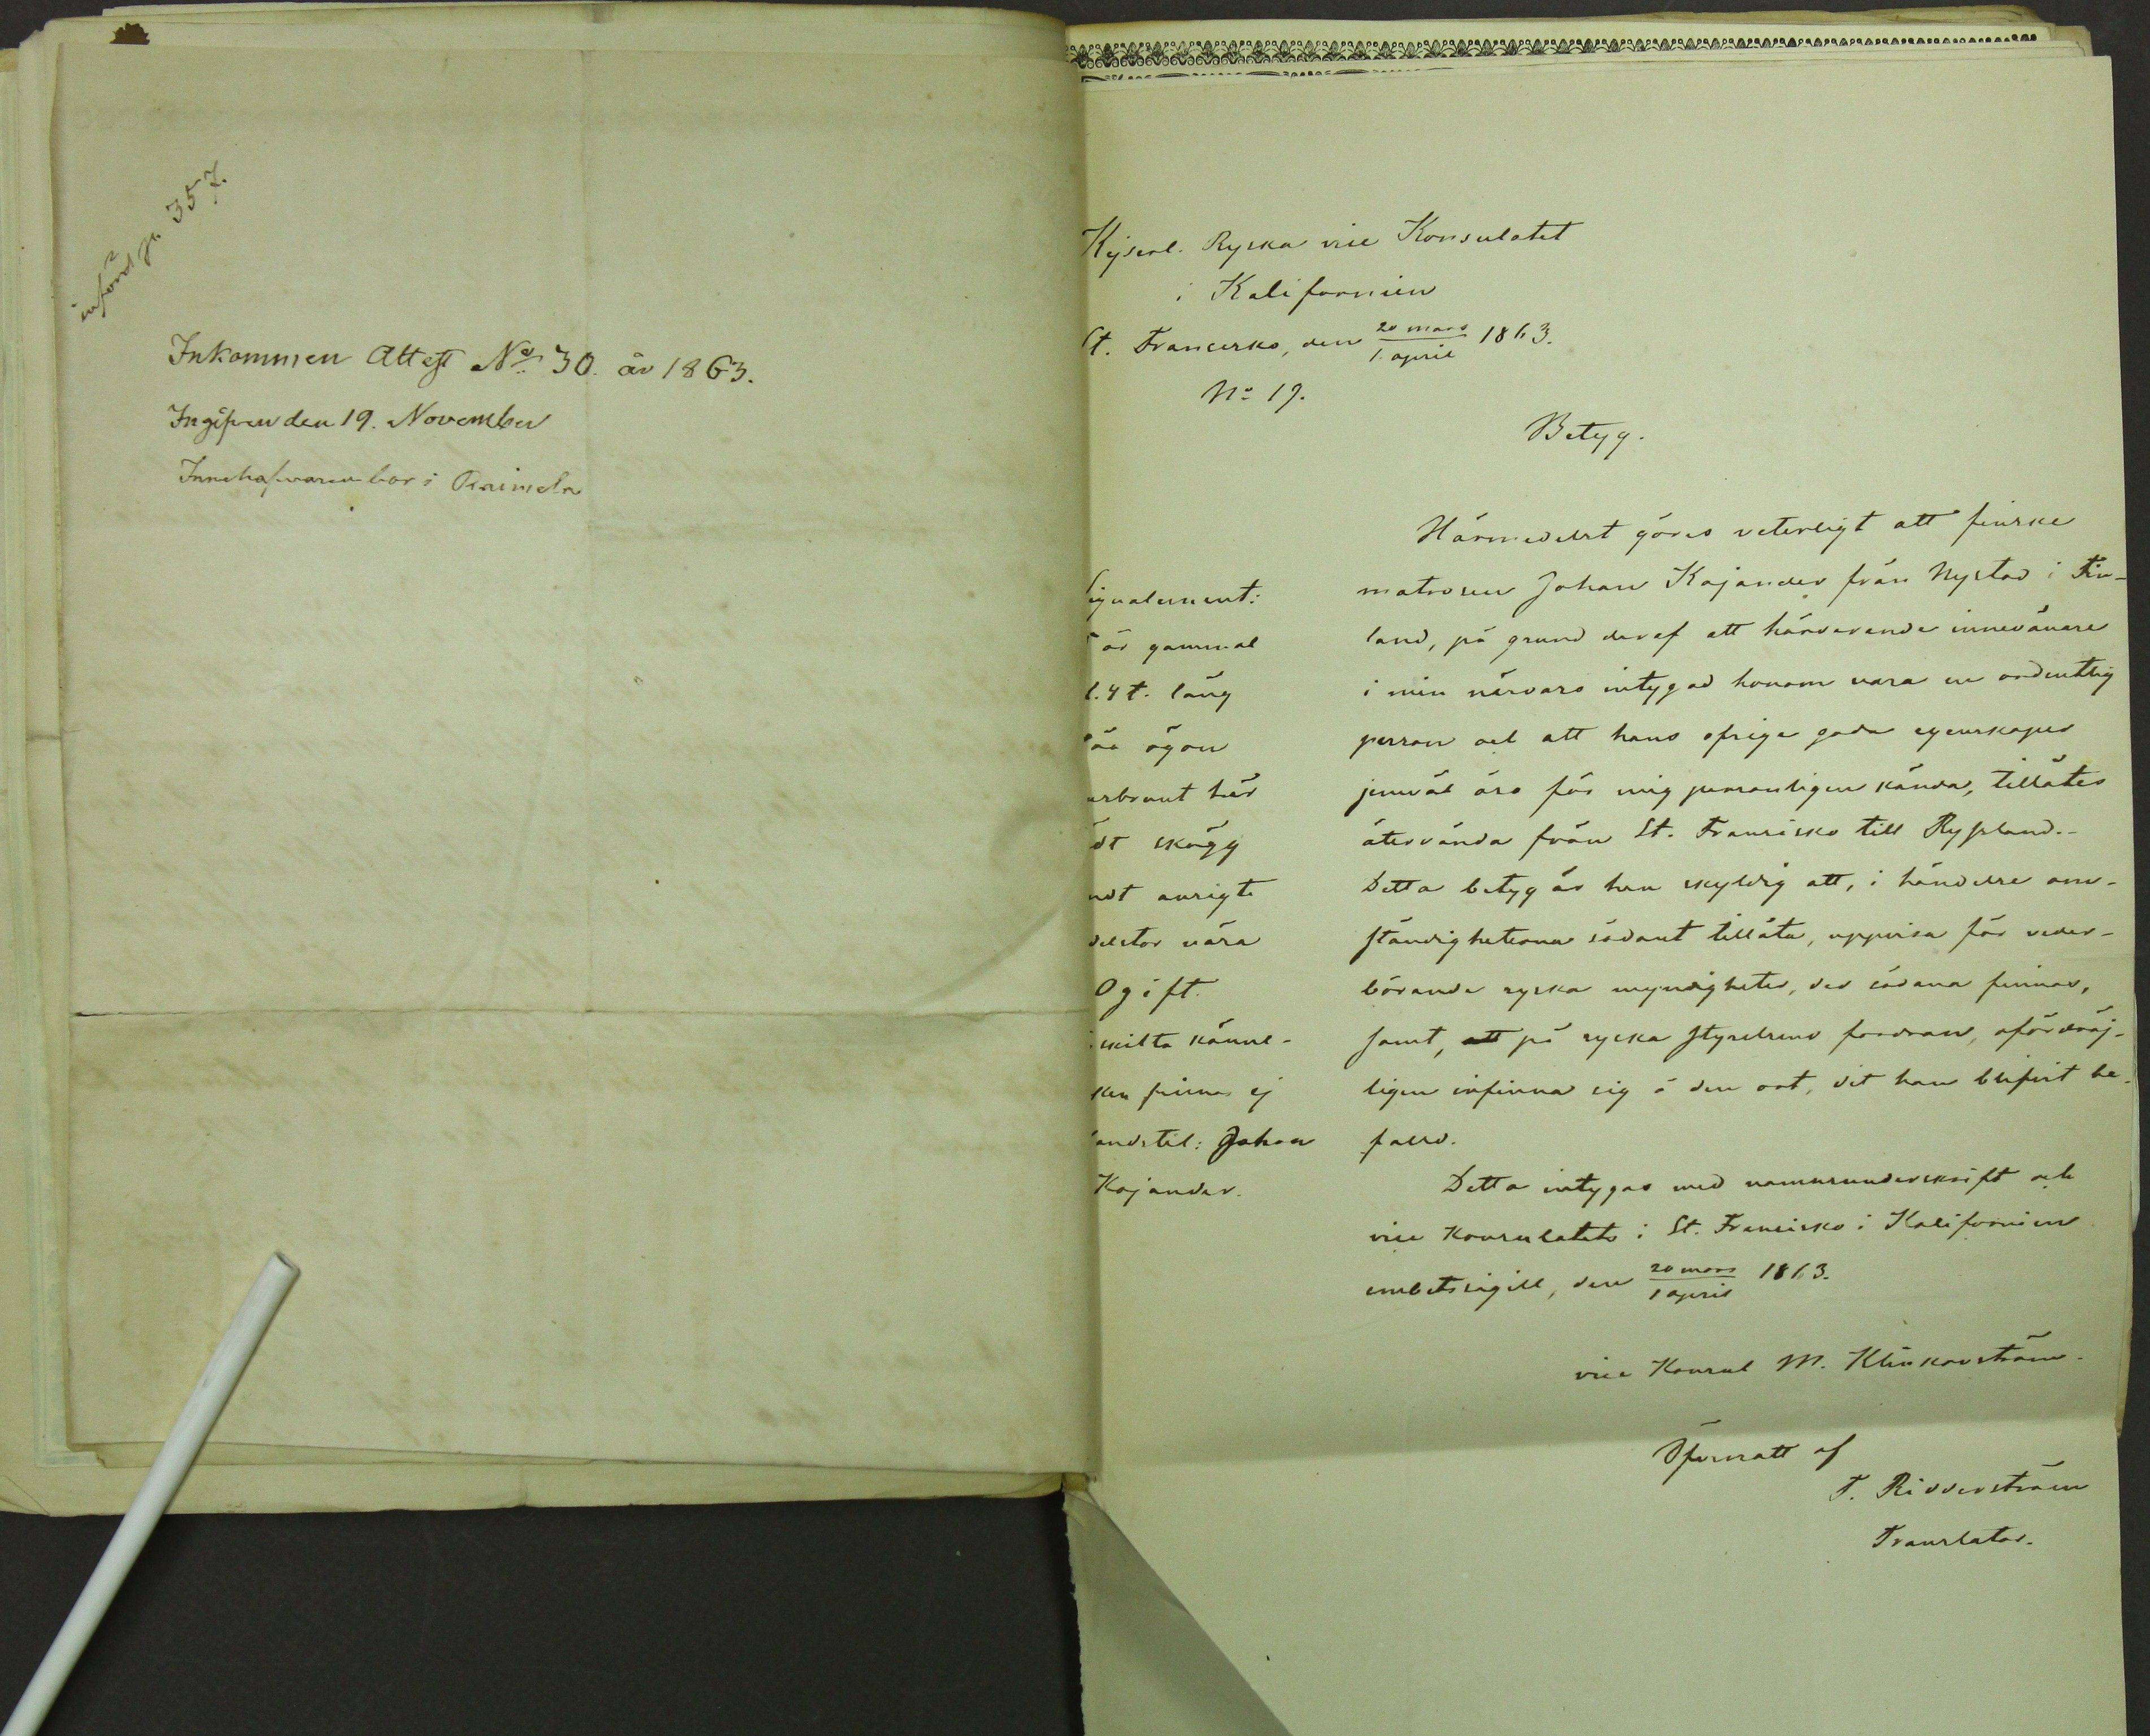 införd p. 357.
Inkommen Attest No. 30. år 1863.
Ingifven den 19. November
Innehafvaren bor i
Kejserl. Ryska vice Konsulatet
i Kalifornien
St. Francisko, den 20 mars / 1. april 1863.
No 19.
Betyg.
Härmedelst göres veterligt att finske
matrosen Johan Kajander från Nystad i Fin-
land, på grund deraf att härvarande innevånare
i min närvaro intygad honom vara en ordentlig
person och att hans öfriga goda egenskaper
jemväl äro för mig personligen kända, tillåtes
återvända från St. Fransisko till Ryssland.-
Detta betyg är han skyldig att, i händelse om-
ständigheterna sådant tillåta, uppvisa för veder-
börande ryska myndigheter, der sådana finnas,
samt, att på ryska styrelsens fordran, ofördröj-
ligen infinna sig å den ort, dit han blifvit be-
falld.
Detta intygas med namnunderskrift och
vice Konsulatets i St. Francisko i Kalifornien
embetssigill, den 20 mars / 1 april 1863.
vice Konsul M. Klinkovström.
Öfversatt af
F. Ridderström
Translator.
Signalement:
år gammal
l. 4 t. lång
åa ögon
rbrunt hår
dt skägg
ndt ansigte
delstor näsa
Ogift.
skilta känne-
ken finnas ej
andstil: Johan
Kajander.